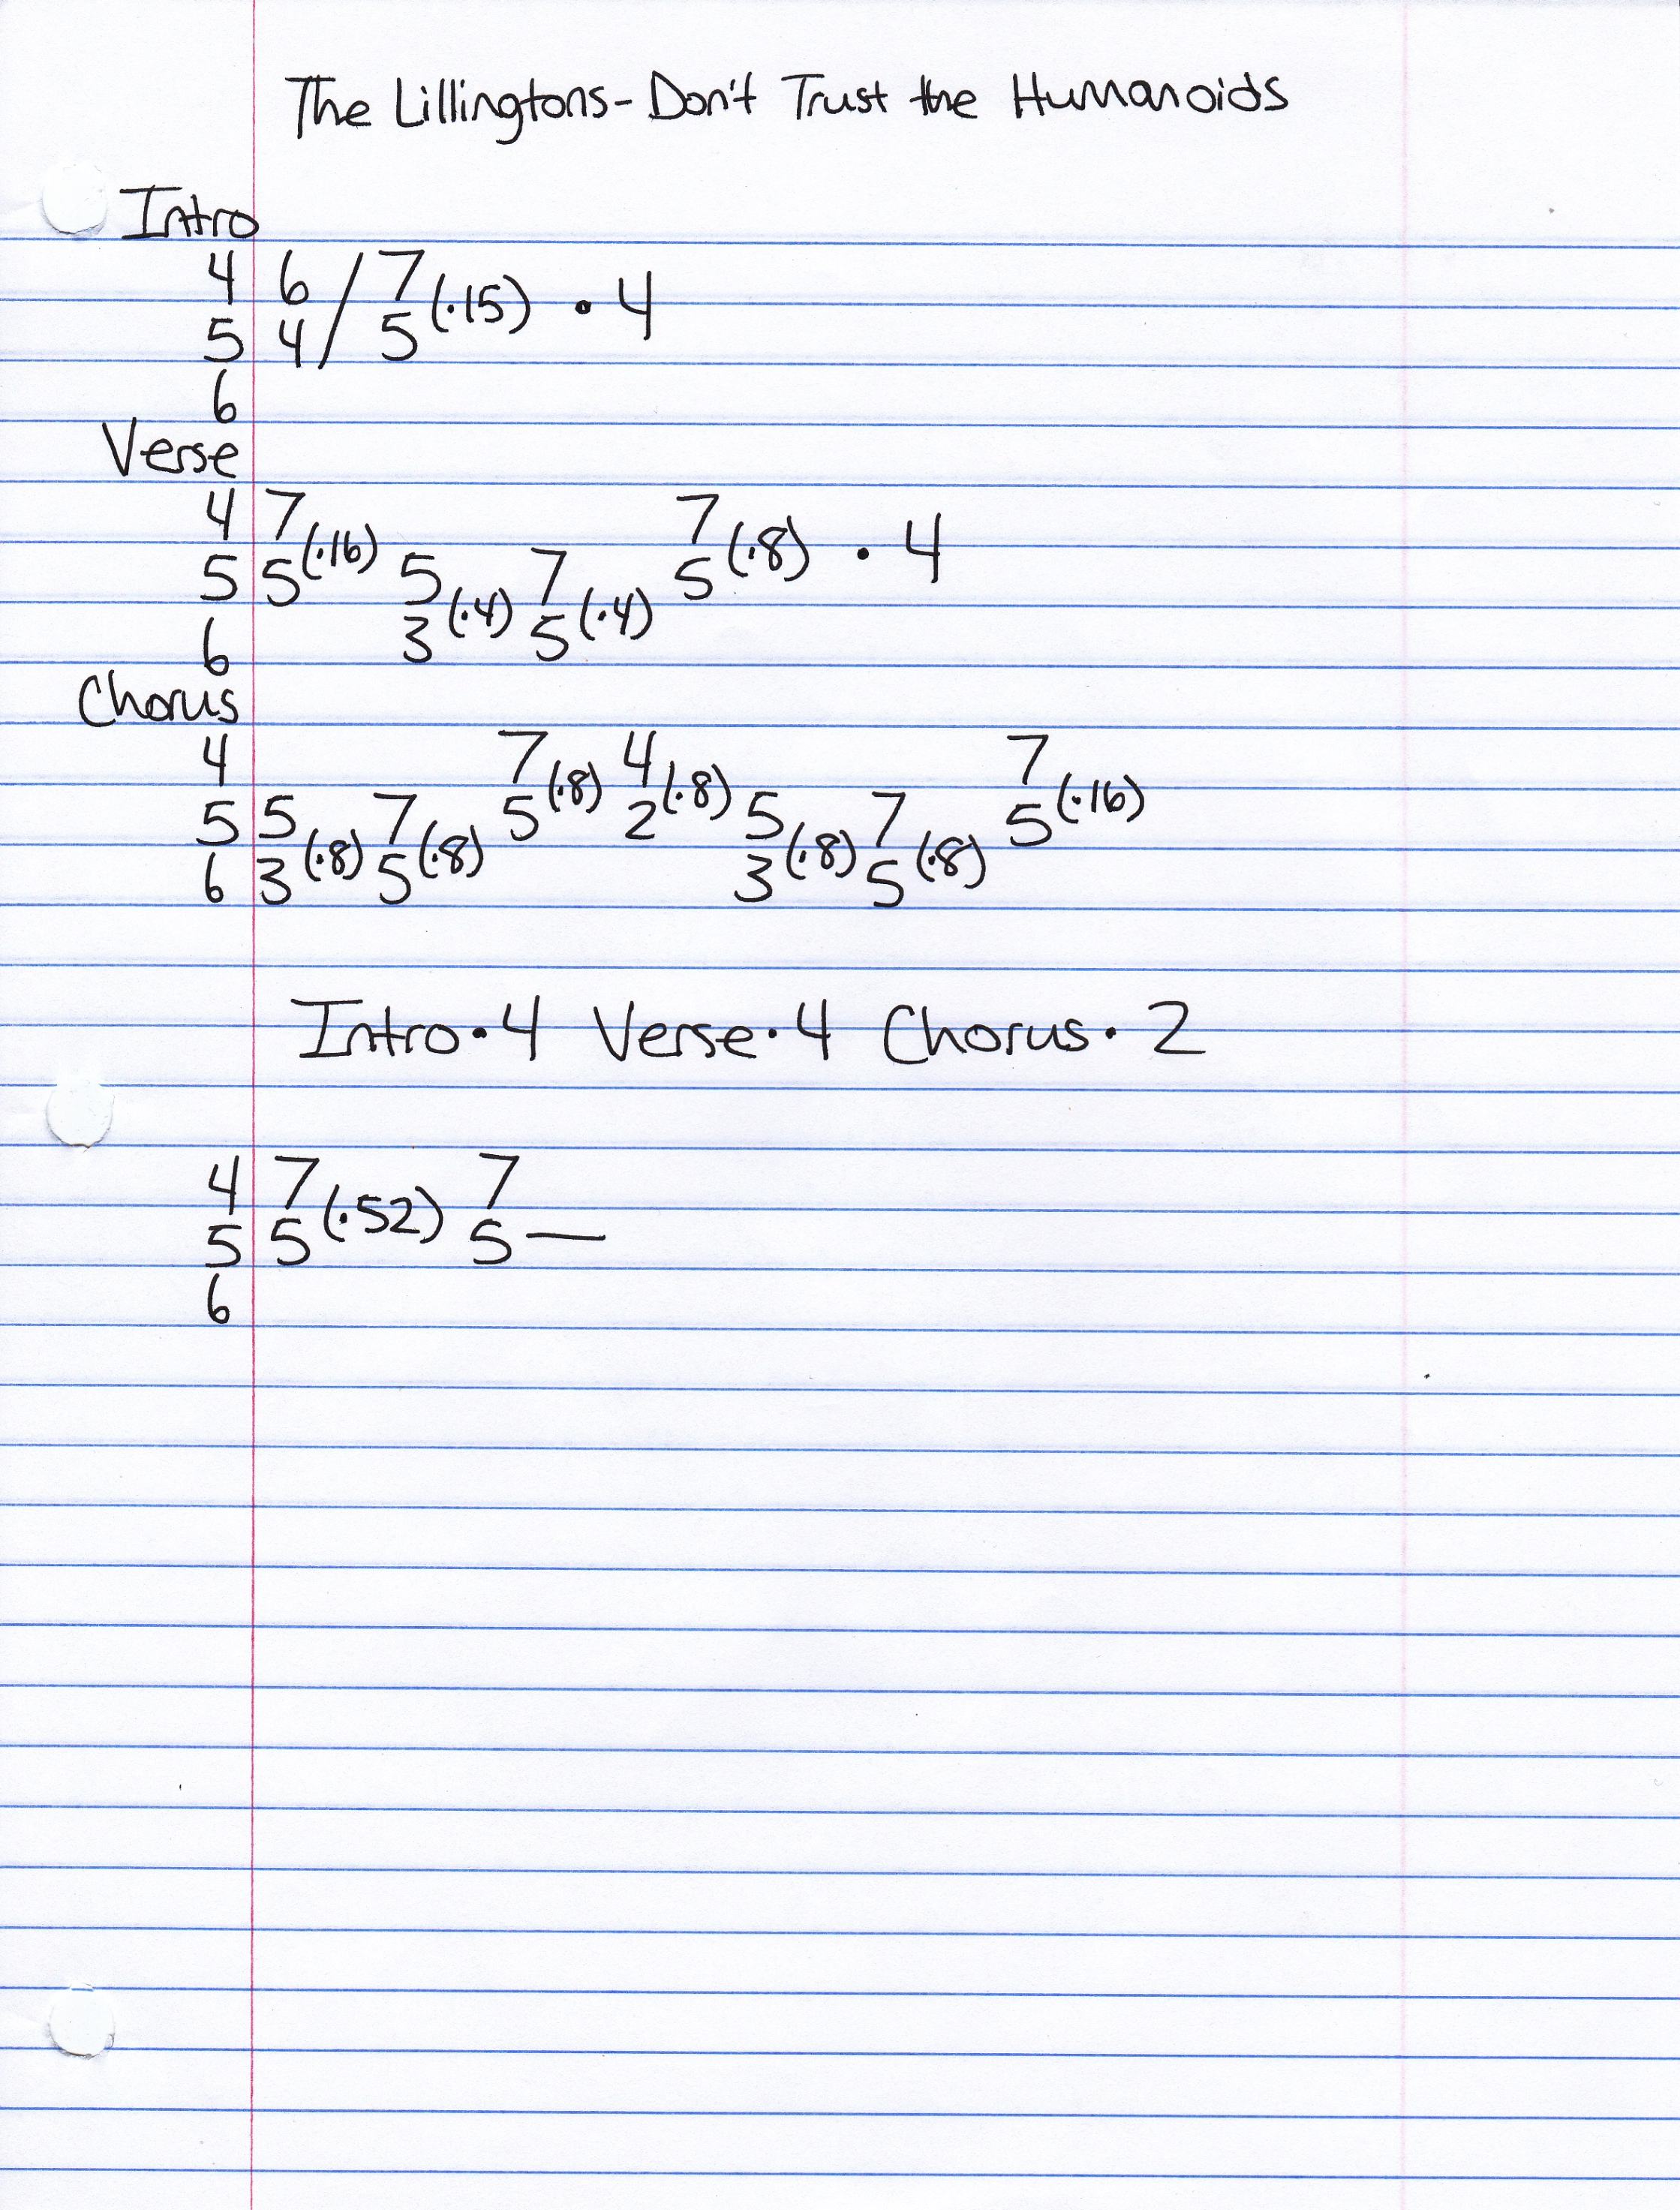 The Lillingtons - Don't Trust the Humanoids
Intro
4 6 / 7 (·15) · 4
5 4 / 5
6
Verse
4 7 (·16) 7 (·8) · 4
5 5 5 (·4) 7 (·4) 5
6 3 5
Chorus
4 7 (·8) 4 (·8) 7 (·16)
5 5 (·8) 7 (·8) 5 2 5 (·8) 7 (·8) 5
6 3 5 3 5
Intro · 4 Verse · 4 Chorus · 2
4 7 (·52) 7
5 5 5 —
6